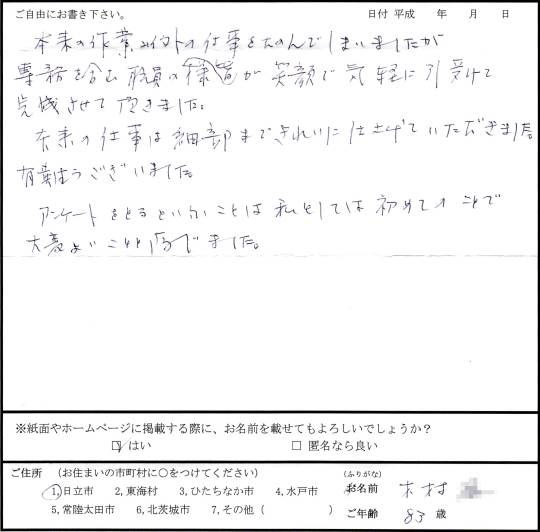 ご自由にお書き下さい。 日付 平成 年 月 日
本来の作業以外の仕事をたのんでしまいましたが
専務を含む職員の皆様が笑顔で気軽に引受けて
完成させて頂きました。
本来の仕事は細部まできれいに仕上げていただきました。
有難うございました。
アンケートをとるということは私としては初めてのことで
大変よいことと
※紙面やホームページに掲載する際に、お名前を載せてもよろしいでしょうか?
☑ はい □ 匿名なら良い
ご住所 (お住まいの市町村に○をつけてください) (ふりがな)
1,日立市 2,東海村 3,ひたちなか市 4,水戸市 お名前 木村
5,常陸太田市 6,北茨城市 7,その他 ( ) ご年齢 83 歳